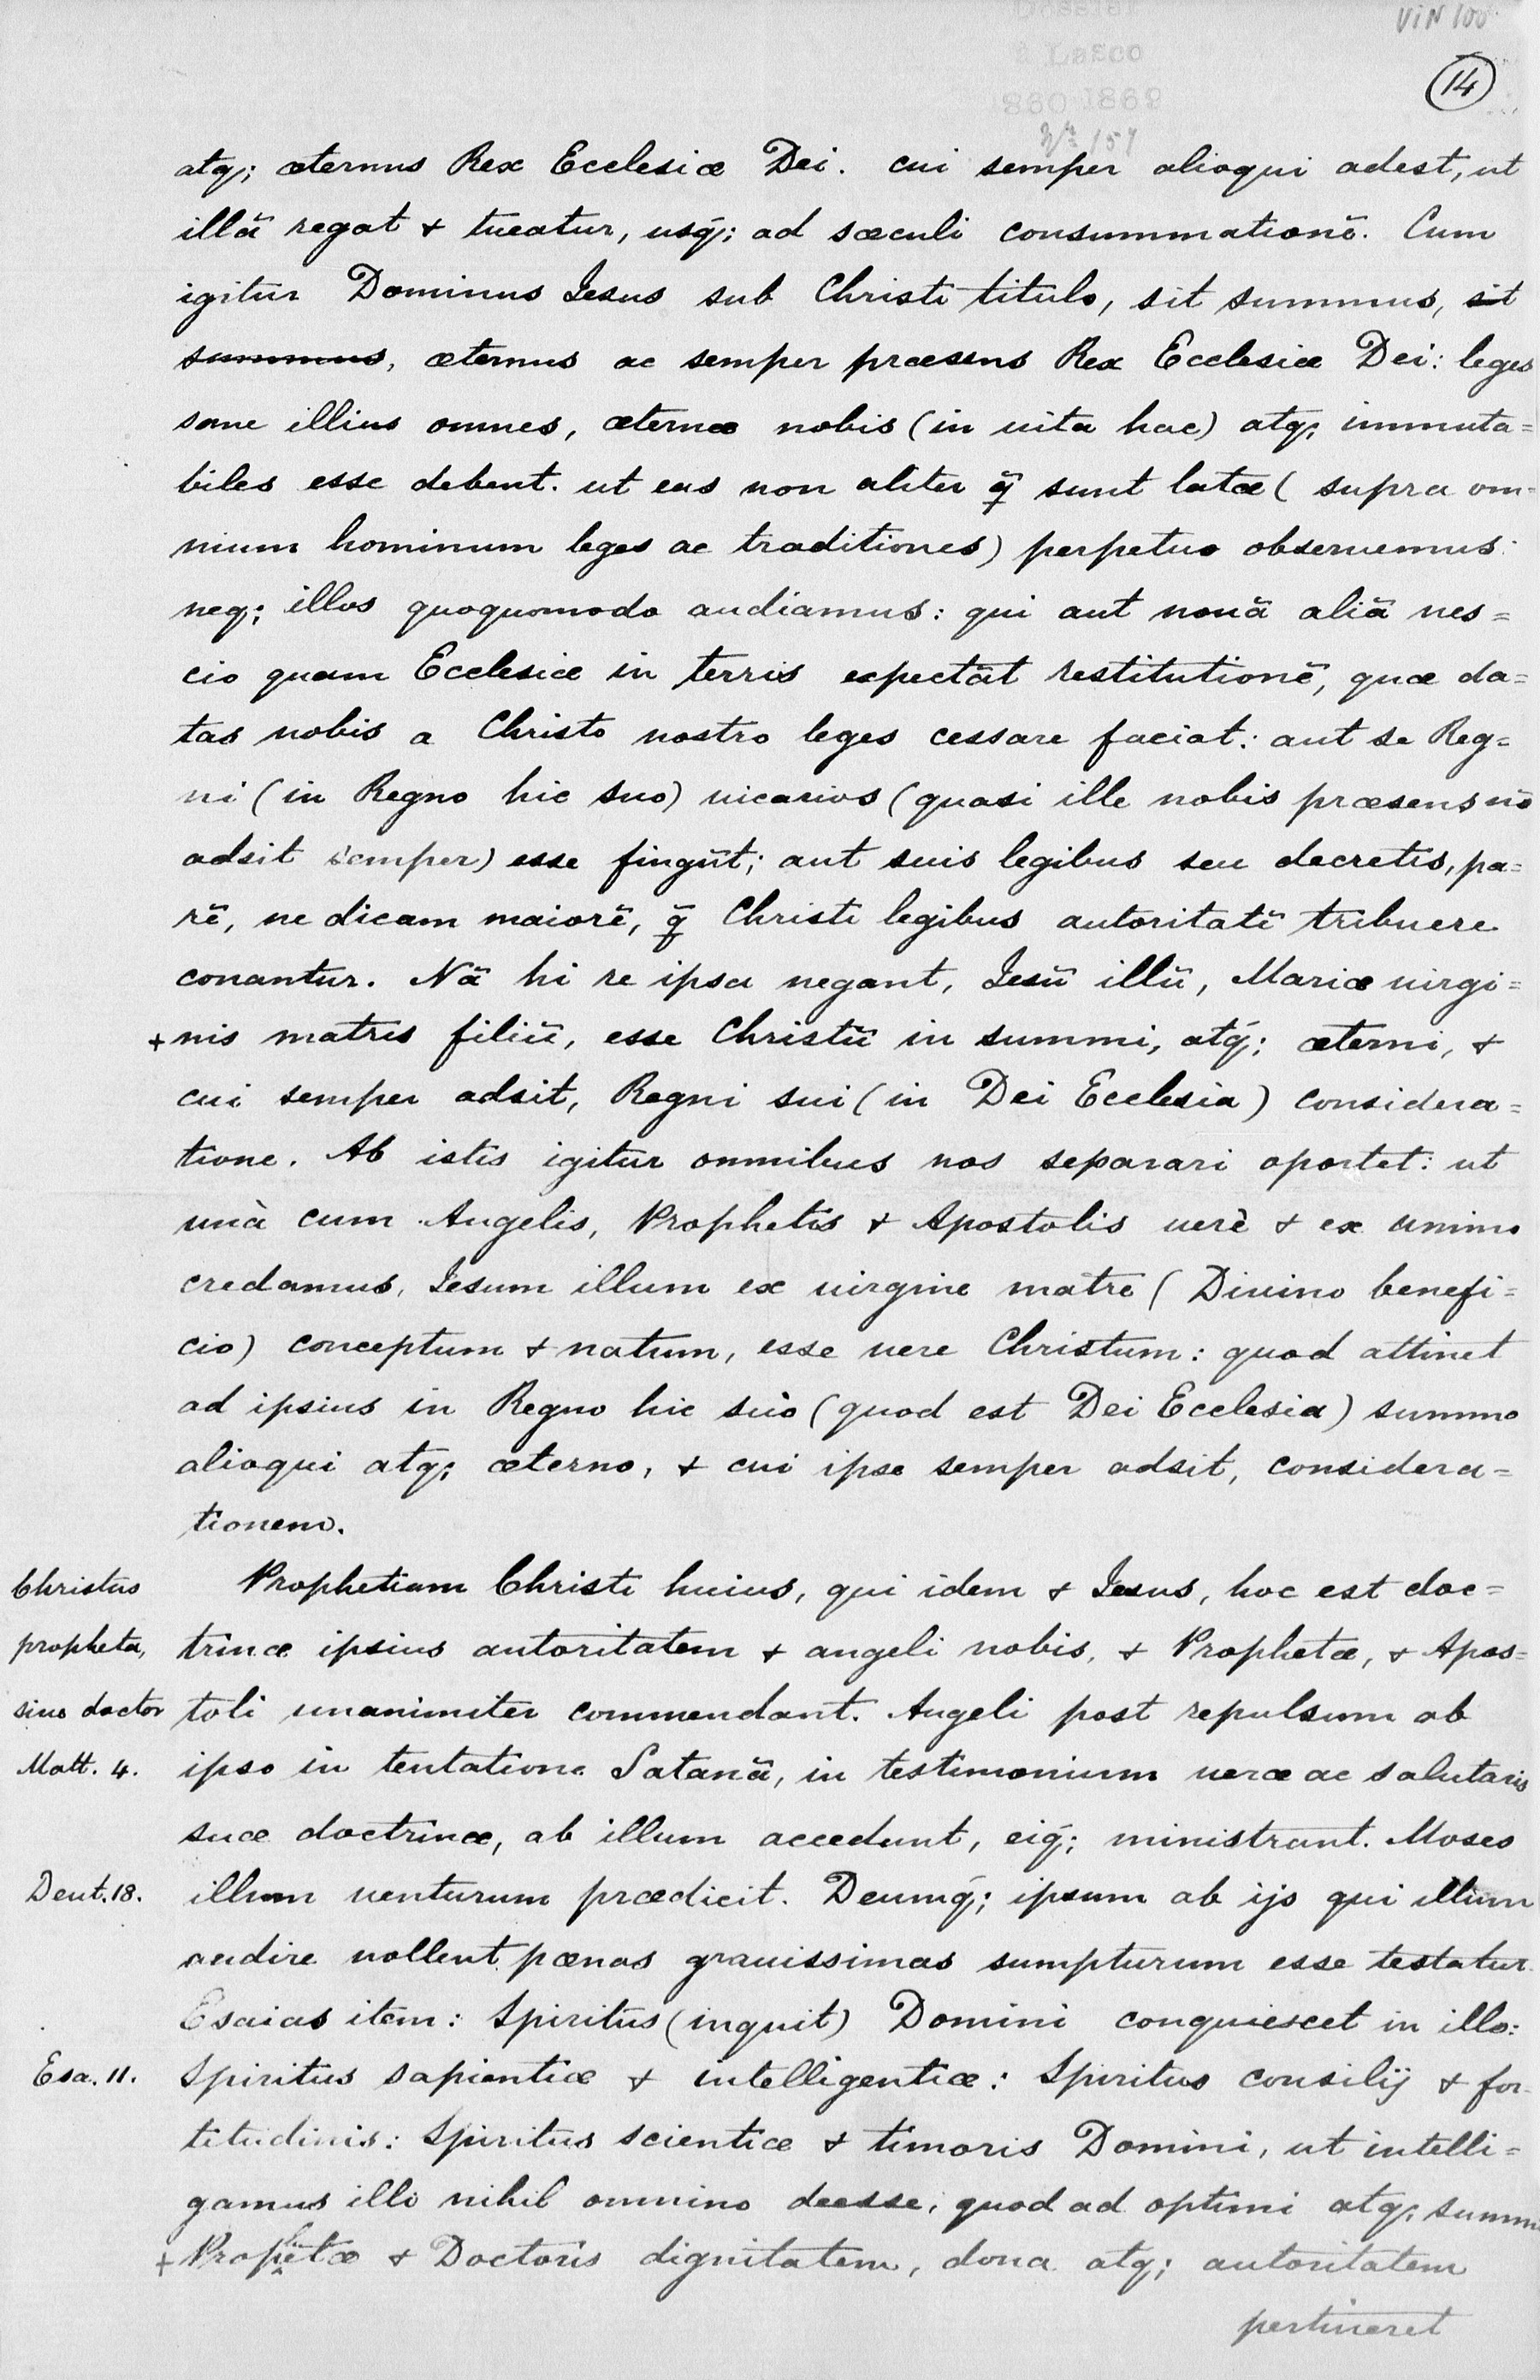 VIN 100
Dossier
à Lasco
860 1862
14
atq; æternus Rex Ecclesiæ Dei. cui semper alioqui adest, ut
illā regat & tueatur, usq́; ad sæculi consummationē. Cum
igitur Dominus Iesus sub Christi titulo, sit summus, ~~sit~~
~~summus~~, æternus ac semper præsens Rex Ecclesiæ Dei: leges
sane illius omnes, æternæ nobis (in uita hac) atq; immuta=
biles esse debent. ut eas non aliter q̄ sunt latæ (supra om=
nium hominum leges ac traditiones) perpetuo obseruemus:
neq; illos quoquomodo audiamus: qui aut nouā aliā nes=
cio quam Ecclesiæ in terris expectāt restitutionē, quæ da=
tas nobis a Christo nostro leges cessare faciat: aut se Reg=
ni (in Regno hic suo) uicarios (quasi ille nobis præsens nō
adsit semper) esse fingūt; aut suis legibus seu decretis, pa=
rē, ne dicam maiorē, q̄ Christi legibus autoritatē tribuere
conantur. Nā hi re ipsa negant, Iesū illū, Mariæ uirgi=
+ nis matris filiū, esse Christū in summi, atq́; æterni, &
cui semper adsit, Regni sui (in Dei Ecclesia) considera=
tione. Ab istis igitur omnibus nos separari oportet: ut
unà cum Angelis, Prophetis & Apostolis uerè & ex animo
credamus, Iesum illum ex uirgine matre (Diuino benefi=
cio) conceptum & natum, esse uere Christum: quod attinet
ad ipsius in Regno hic suo (quod est Dei Ecclesia) summo
alioqui atq; æterno, & cui ipse semper adsit, considera=
tionem.
Christus Prophetiam Christi huius, qui idem & Iesus, hoc est doc=
propheta, trinæ ipsius autoritatem & angeli nobis, & Prophetæ, & Apos=
siue doctor toli unanimiter commendant. Angeli post repulsum ab
Matt. 4. ipso in tentatione Satanā, in testimonium ueræ ac salutaris
suæ doctrinæ, ab illum accedunt, eiq́; ministrant. Moses
Deut. 18. illum uenturum prædicit. Deumq́; ipsum ab ijs qui illum
audire nollent pœnas grauissimas sumpturum esse testatur.
Esaias item: Spiritus (inquit) Domini conquiescet in illo:
Esa. 11. Spiritus sapientiæ & intelligentiæ: Spiritus consilij & for=
titudinis: Spiritus scientiæ & timoris Domini, ut intelli=
gamus illi nihil omnino deesse, quod ad optimi atq; summi
+ Prophetæ & Doctoris dignitatem, dona atq; autoritatem
pertineret